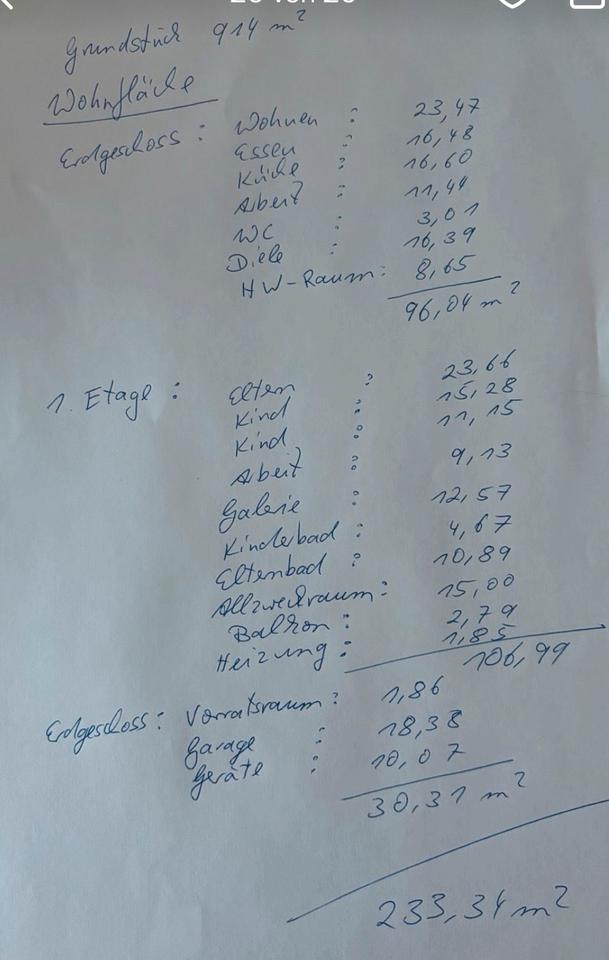 Grundstück 914 m²
Wohnfläche
Erdgeschoss : Wohnen : 23,47
Essen : 16,48
Küche : 16,60
Arbeit : 11,44
WC : 3,01
Diele : 16,39
HW-Raum : 8,65
96,04 m²
1. Etage : Eltern : 23,66
Kind : 15,28
Kind : 11,15
Arbeit : 9,13
Galerie : 12,57
Kinderbad : 4,67
Elternbad : 10,89
Allzweckraum : 15,00
Balkon : 2,79
Heizung : 1,85
106,99
Erdgeschoss : Vorratsraum : 1,86
Garage : 18,38
Geräte : 10,07
30,31 m²
233,34 m²